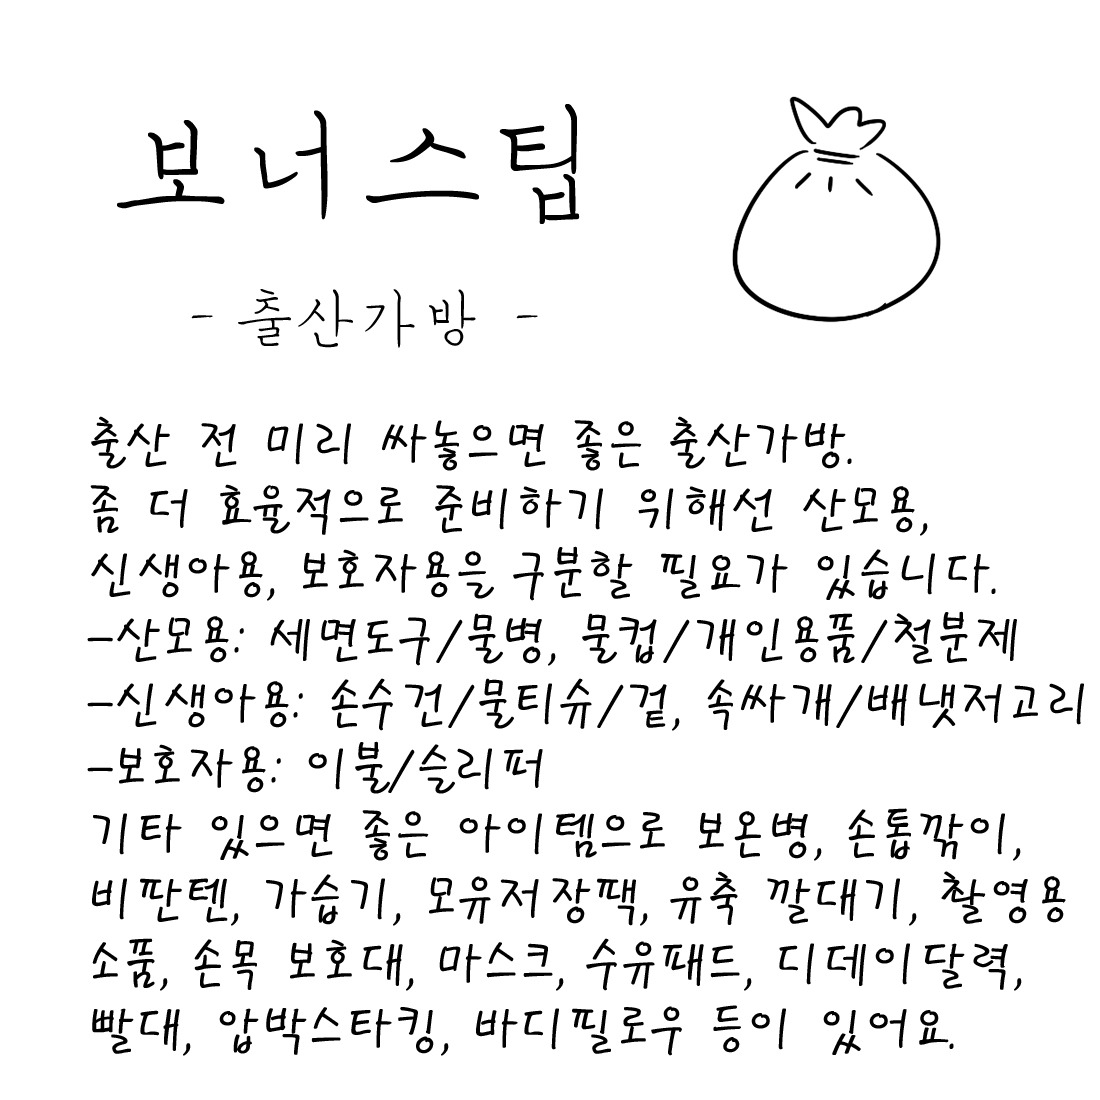 보너스팁
- 출산가방 -
출산 전 미리 싸놓으면 좋은 출산가방.
좀 더 효율적으로 준비하기 위해선 산모용,
신생아용, 보호자용을 구분할 필요가 있습니다.
-산모용: 세면도구/물병, 물컵/개인용품/철분제
-신생아용: 손수건/물티슈/겉, 속싸개/배냇저고리
-보호자용: 이불/슬리퍼
기타 있으면 좋은 아이템으로 보온병, 손톱깎이,
비판텐, 가습기, 모유저장팩, 유축 깔대기, 촬영용
소품, 손목 보호대, 마스크, 수유패드, 디데이달력,
빨대, 압박스타킹, 바디필로우 등이 있어요.